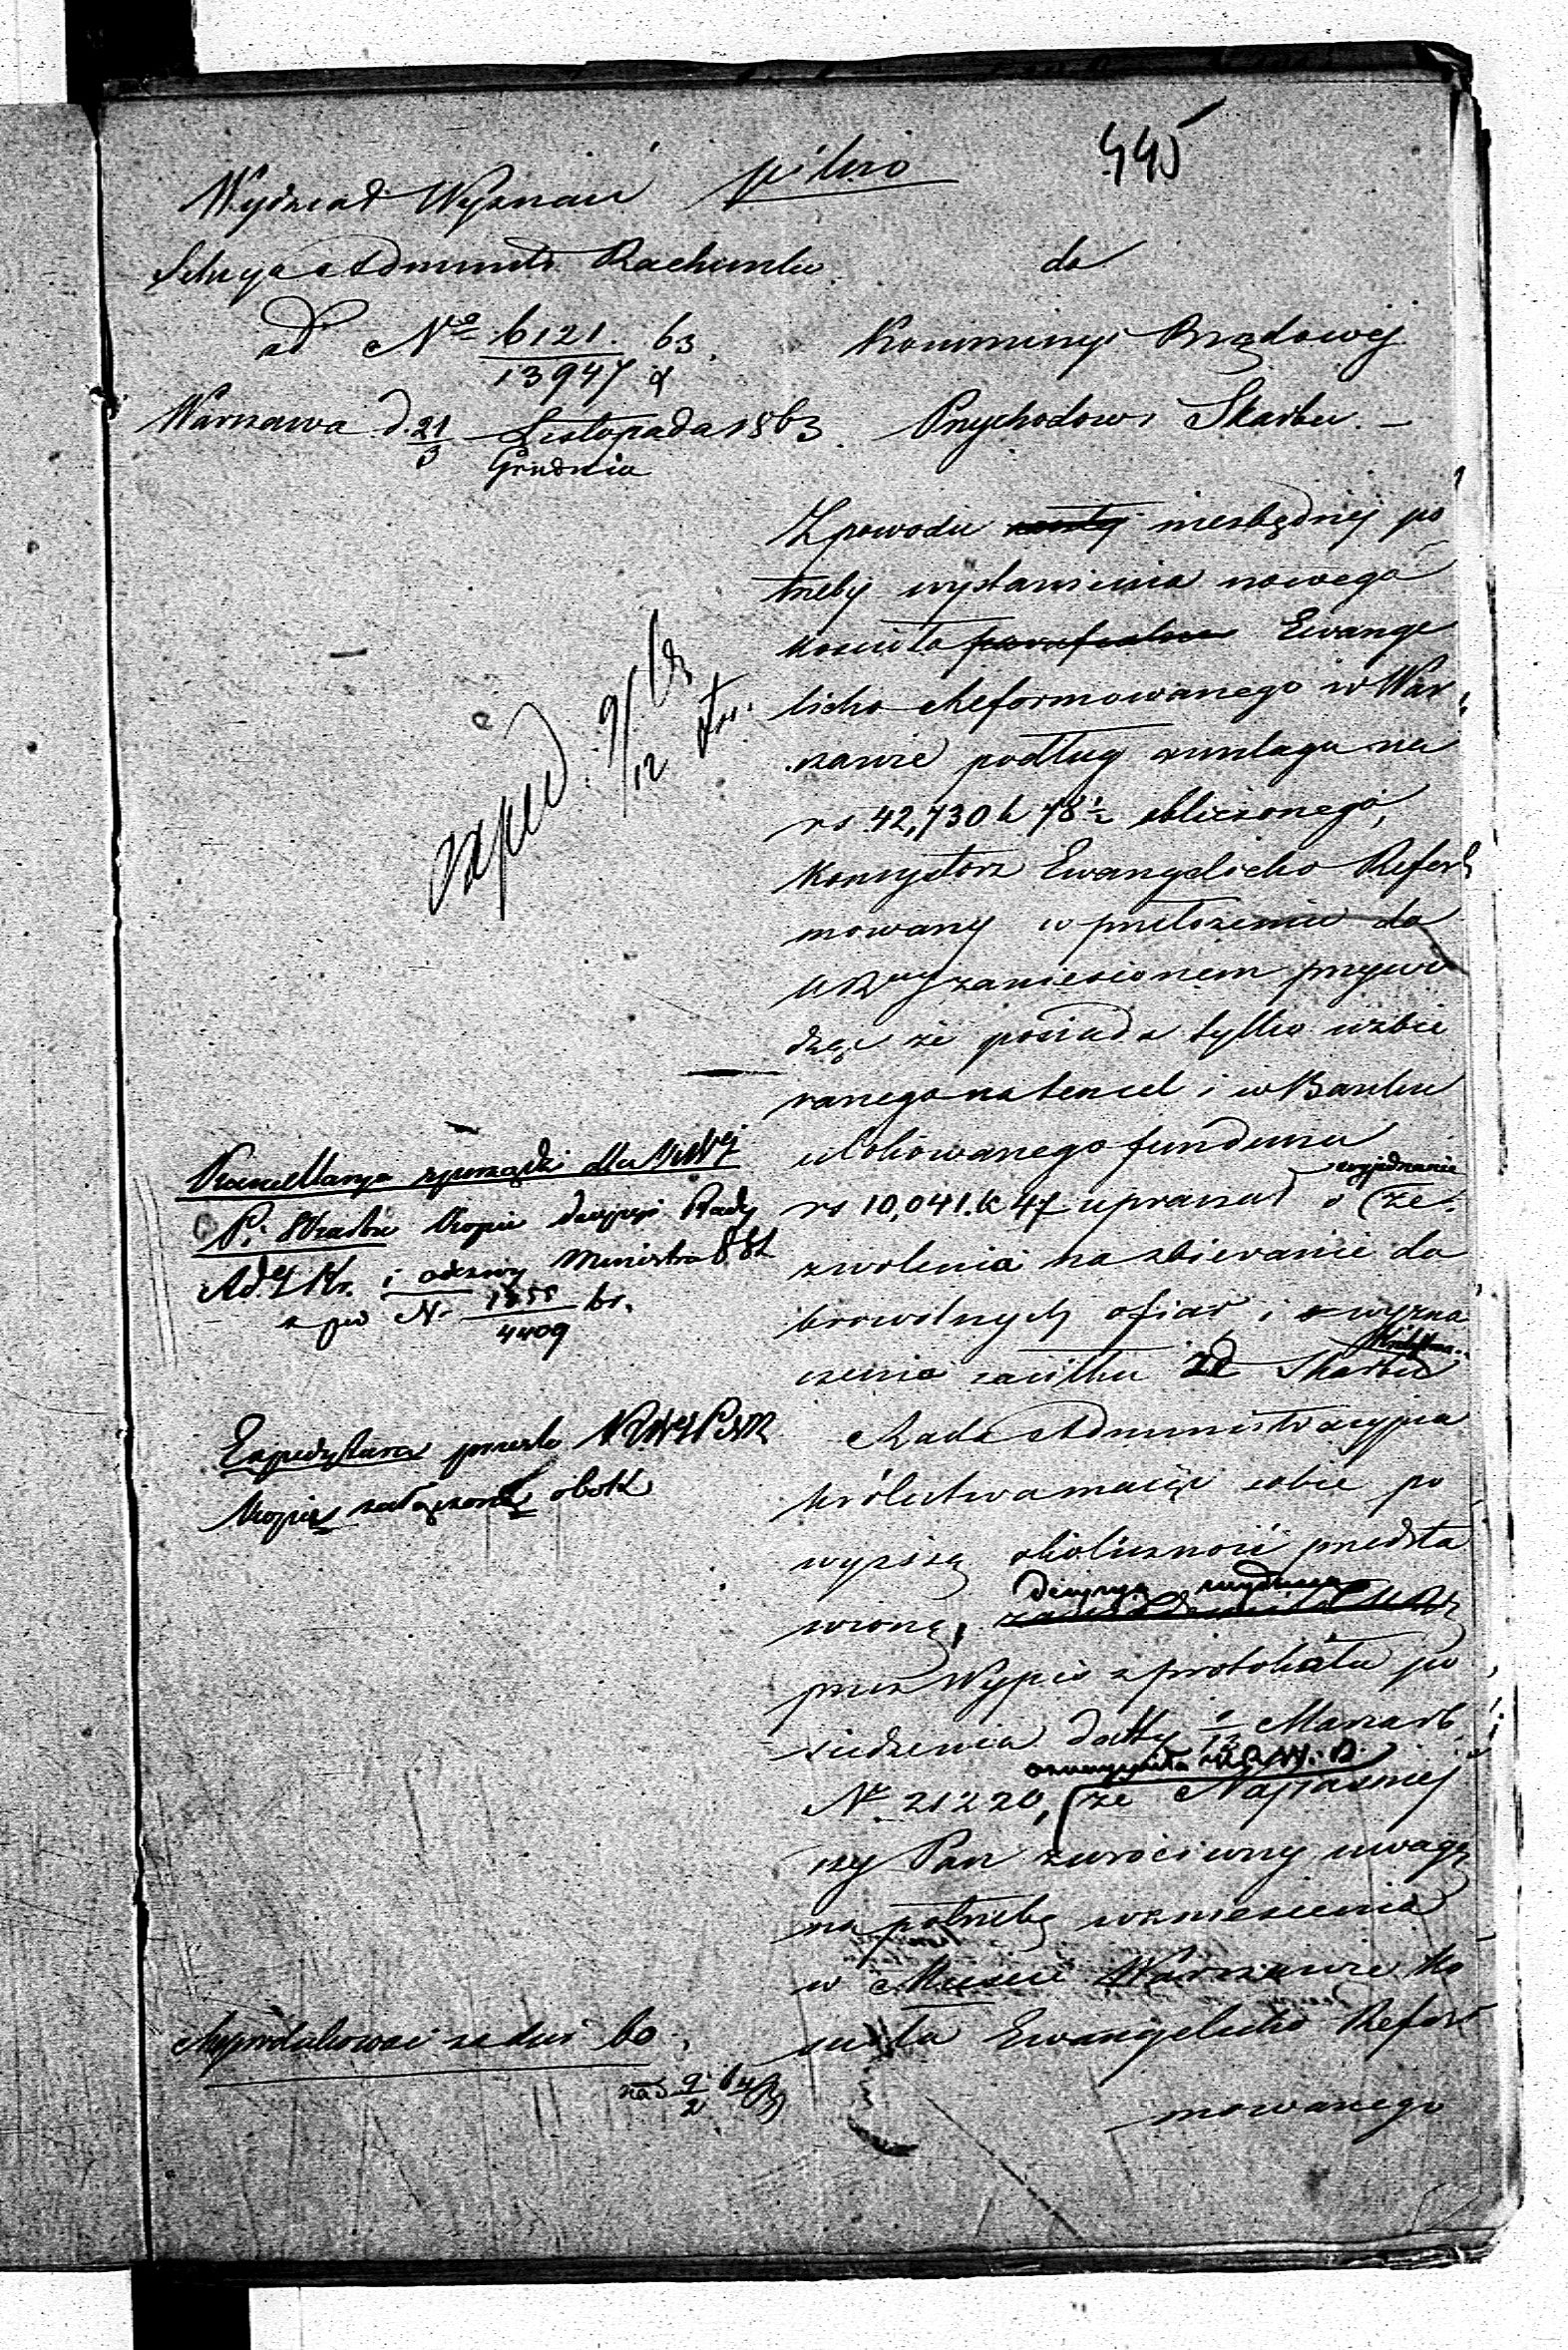 445
Wydział Wyznań pilno
Sekcya Administr. Rachunko.
ad No 6121. 63.
13947
Warszawa d. 21 Listopada 1863.
3 Grudnia
do
Kommissyi Rządowéj
Przychodów i Skarbu. —
Z powodu niezbędnéj po
trzeby wystawienia nowego
kościoła parafialnego Ewange
licko Reformowanego w War
szawie podług anszlagu na
rs 42,730 k 78½ obliczonego,
Konsystorz Ewangelicko Refor
mowany w przełożeniu do
zaniesionem przywo
dząc że posiada tylko uzbie
ranego na ten cel i w Banku
ulokowanego funduszu
rs 10,041. k 47 upraszał o wyjednanie ze
zwolenia na zbieranie do
browolnych ofiar i o wyzna
czenie zasiłku ze Skarbu
Rada Administracyjna
Królestwa mając sobie po
wyższą okoliczność przedsta
wioną, decyzyą wydaną
przez Wypis z protokółu po
siedzenia datty 1/13 Marca rb
Nr 21220, że Najjaśniej
szy Pan zwróciwszy uwagę
na potrzebę wzniesienia
w Mieście Warszawie Ko
ścioła Ewangelicko Refor
mowanego
exped. 9/12 63
Kancellarya sporządzi dla
P. i Skarbu kopie decyzyi Rady
Adm Kr. i odezwy Ministra
z pod Nr 1355
4409 63.
Expedytura prześle
kopię załączoną obok
Wyprodukować za dni 60
na d 9/2 64